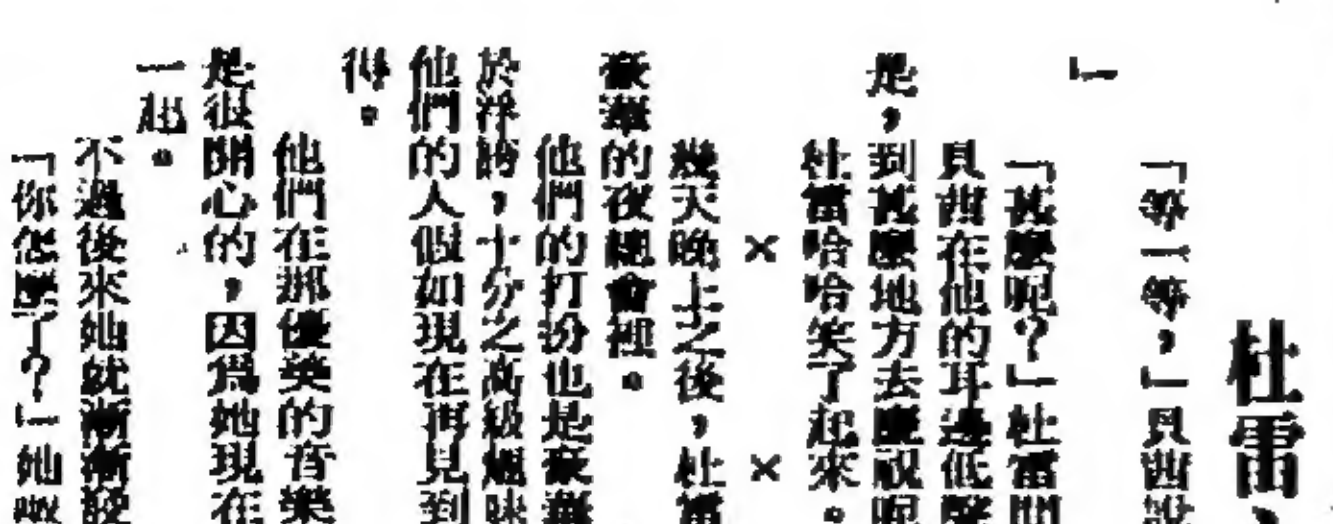 杜雷、
「等一等，」貝茜說
」
「甚麼呢？」杜雷問
貝茜在他的耳邊低聲
是，到甚麼地方去慶祝呢
杜雷哈哈笑了起來。
××
幾天晚上之後，杜雷
豪華的夜總會裡。
他們的打扮也是豪華
於浮誇，十分之高級趣味
他們的人假如現在再見到
得。
他們在那優美的音樂
是很開心的，因爲她現在
一起。
不過後來她就漸漸發
「你怎麼了？」她